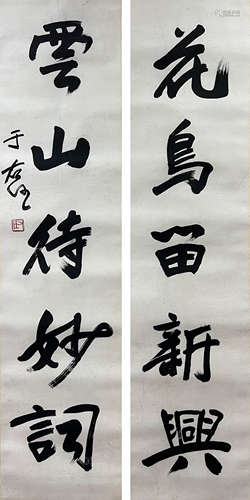 花鳥留新興
雲山待妙詞
于右任